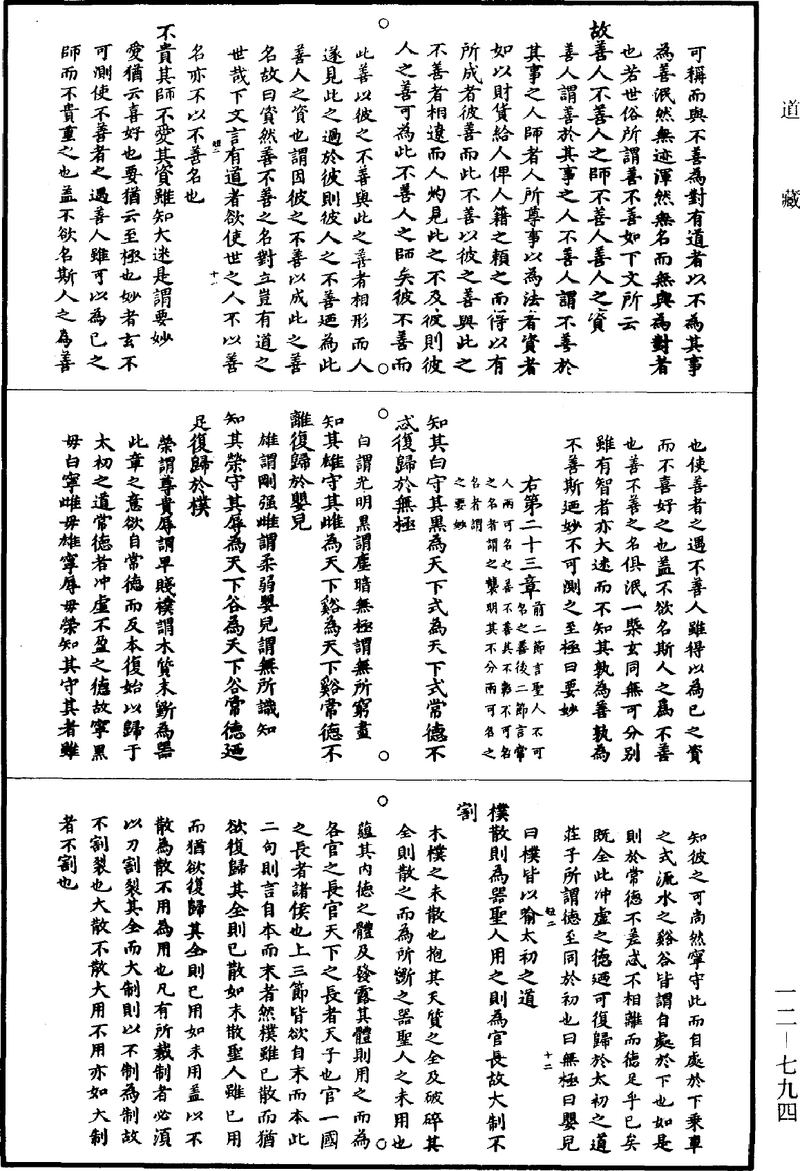 道藏
可稱而與不善為對有道者以不為其事
為善泯然無迹渾然無名而無與為對者
也若世俗所謂善不善如下文所云
故善人不善人之師不善人善人之資
善人謂善於其事之人不善人謂不善於
其事之人師者人所尊事以為法者資者
如以財貨給人俾人籍之賴之而得以有
所成者彼善而此不善以彼之善與此之
不善者相遠而人灼見此之不及彼則彼
人之善可為此不善人之師矣彼不善而
此善以彼之不善與此之善者相形而人
遂見此之過於彼則彼人之不善迺為此
善人之資也謂因彼之不善以成此之善
名故曰資然善不善之名對立豈有道之
世哉下文言有道者欲使世之人不以善
短二 十一
名亦不以不善名也
不貴其師不愛其資雖知大迷是謂要妙
愛猶云喜好也要猶云至極也妙者玄不
可測使不善者之遇善人雖可以為已之
師而不貴重之也盖不欲名斯人之為善
也使善者之遇不善人雖得以為已之資
而不喜好之也盖不欲名斯人之為不善
也善不善之名俱泯一槩玄同無可分別
雖有智者亦大迷而不知其孰為善孰為
不善斯迺妙不可測之至極曰要妙
右第二十三章前二節言聖人不可
名之善後二節言常
人兩可名之善不善其不彰不可名
之名者謂之襲明其不分兩可名之
名者謂
之要妙
知其白守其黑為天下式為天下式常德不
忒復歸於無極
白謂光明黑謂塵暗無極謂無所窮盡
知其雄守其雌為天下谿為天下谿常德不
離復歸於嬰兒
雄謂剛强雌謂柔弱嬰兒謂無所識知
知其榮守其辱為天下谷為天下谷常德迺
足復歸於樸
榮謂尊貴辱謂卑賤樸謂木質未斲為器
此章之意欲自常德而反本復始以歸于
太初之道常德者冲虛不盈之德故寧黑
毋白寧雌毋雄寧辱毋榮知其守其者雖
知彼之可尚然寧守此而自處於下乘車
之式流水之谿谷皆謂自處於下也如是
則於常德不差忒不相離而德足乎已矣
既全此冲虛之德迺可復歸於太初之道
莊子所謂德至同於初也曰無極曰嬰兒
短二 十二
曰樸皆以喻太初之道
樸散則為器聖人用之則為官長故大制不
割
木樸之未散也抱其天質之全及破碎其
全則散之而為所斲之器聖人之未用也
蘊其內德之體及發露其體則用之而為
各官之長官天下之長者天子也官一國
之長者諸侯也上三節皆欲自末而本此
二句則言自本而末者然樸雖已散而猶
欲復歸其全則已散如未散聖人雖已用
而猶欲復歸其全則已用如未用盖以不
散為散不用為用也凡有所裁制者必須
以刀割裂其全而大制則以不制為制故
不割裂也大散不散大用不用亦如大制
者不割也
一二－七九四